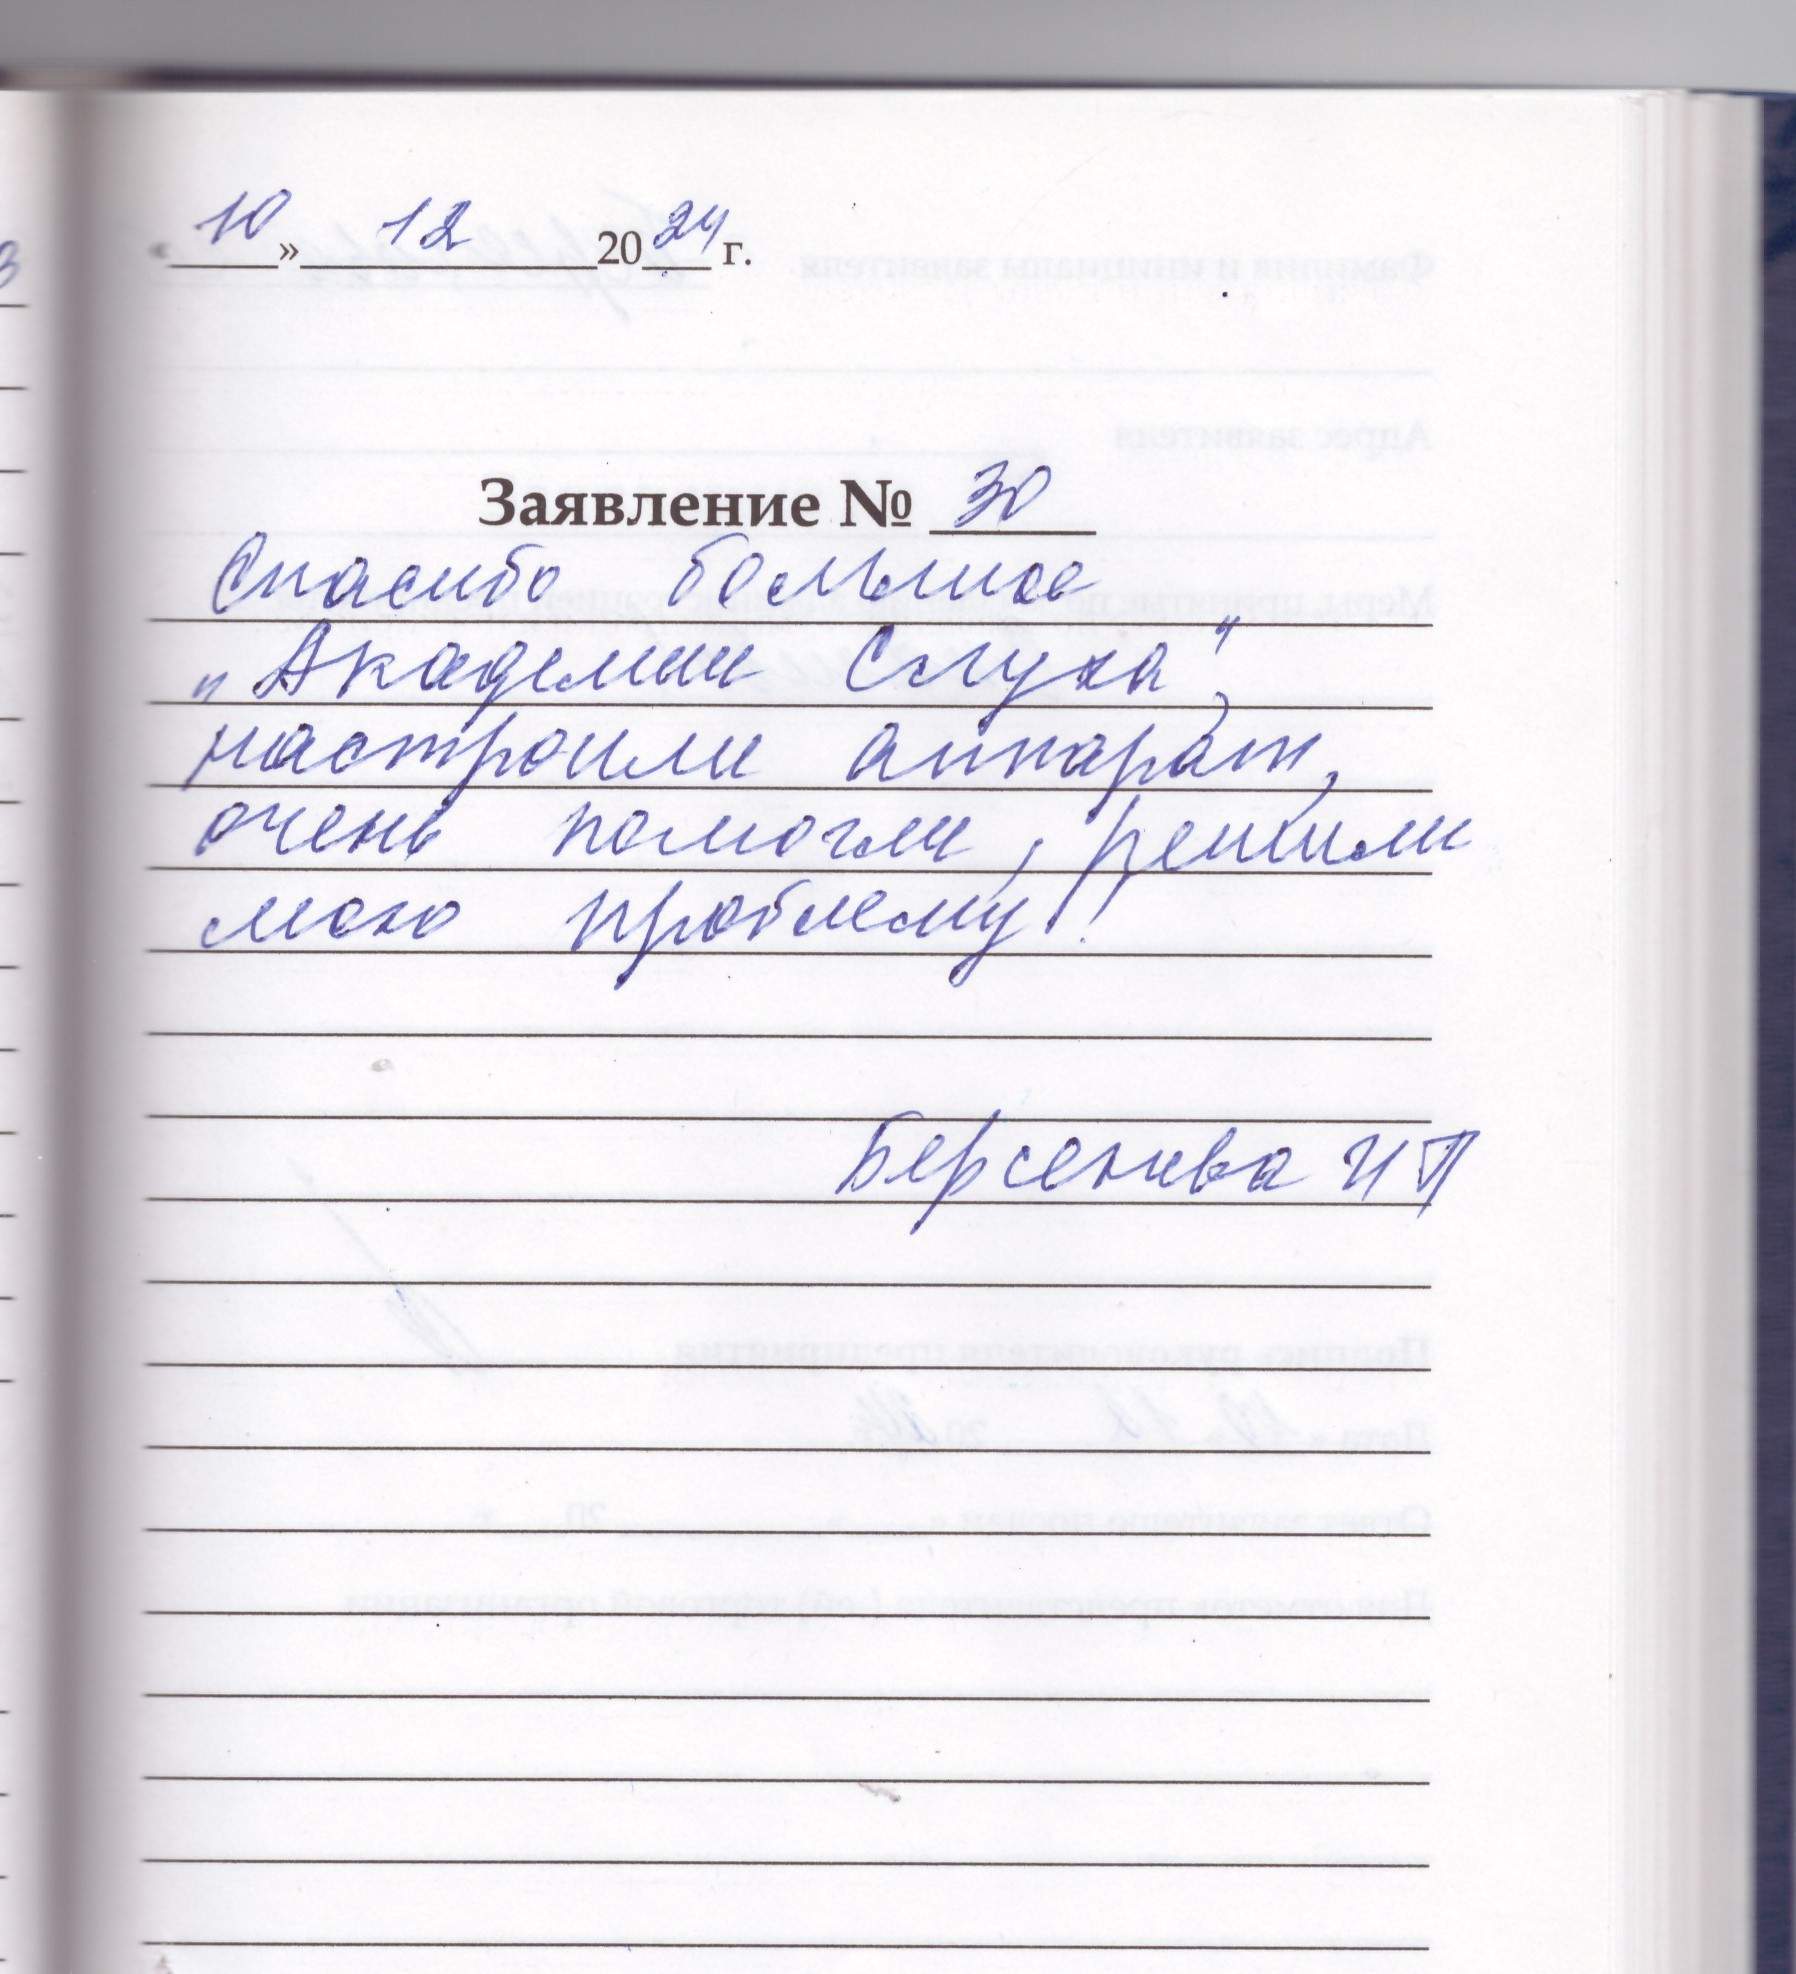 « 10 » 12 2024 г.
Заявление № 30
Спасибо большое
"Академии Слуха",
настроили аппарат,
очень помогли, решили
мою проблему!
Берсенева И П